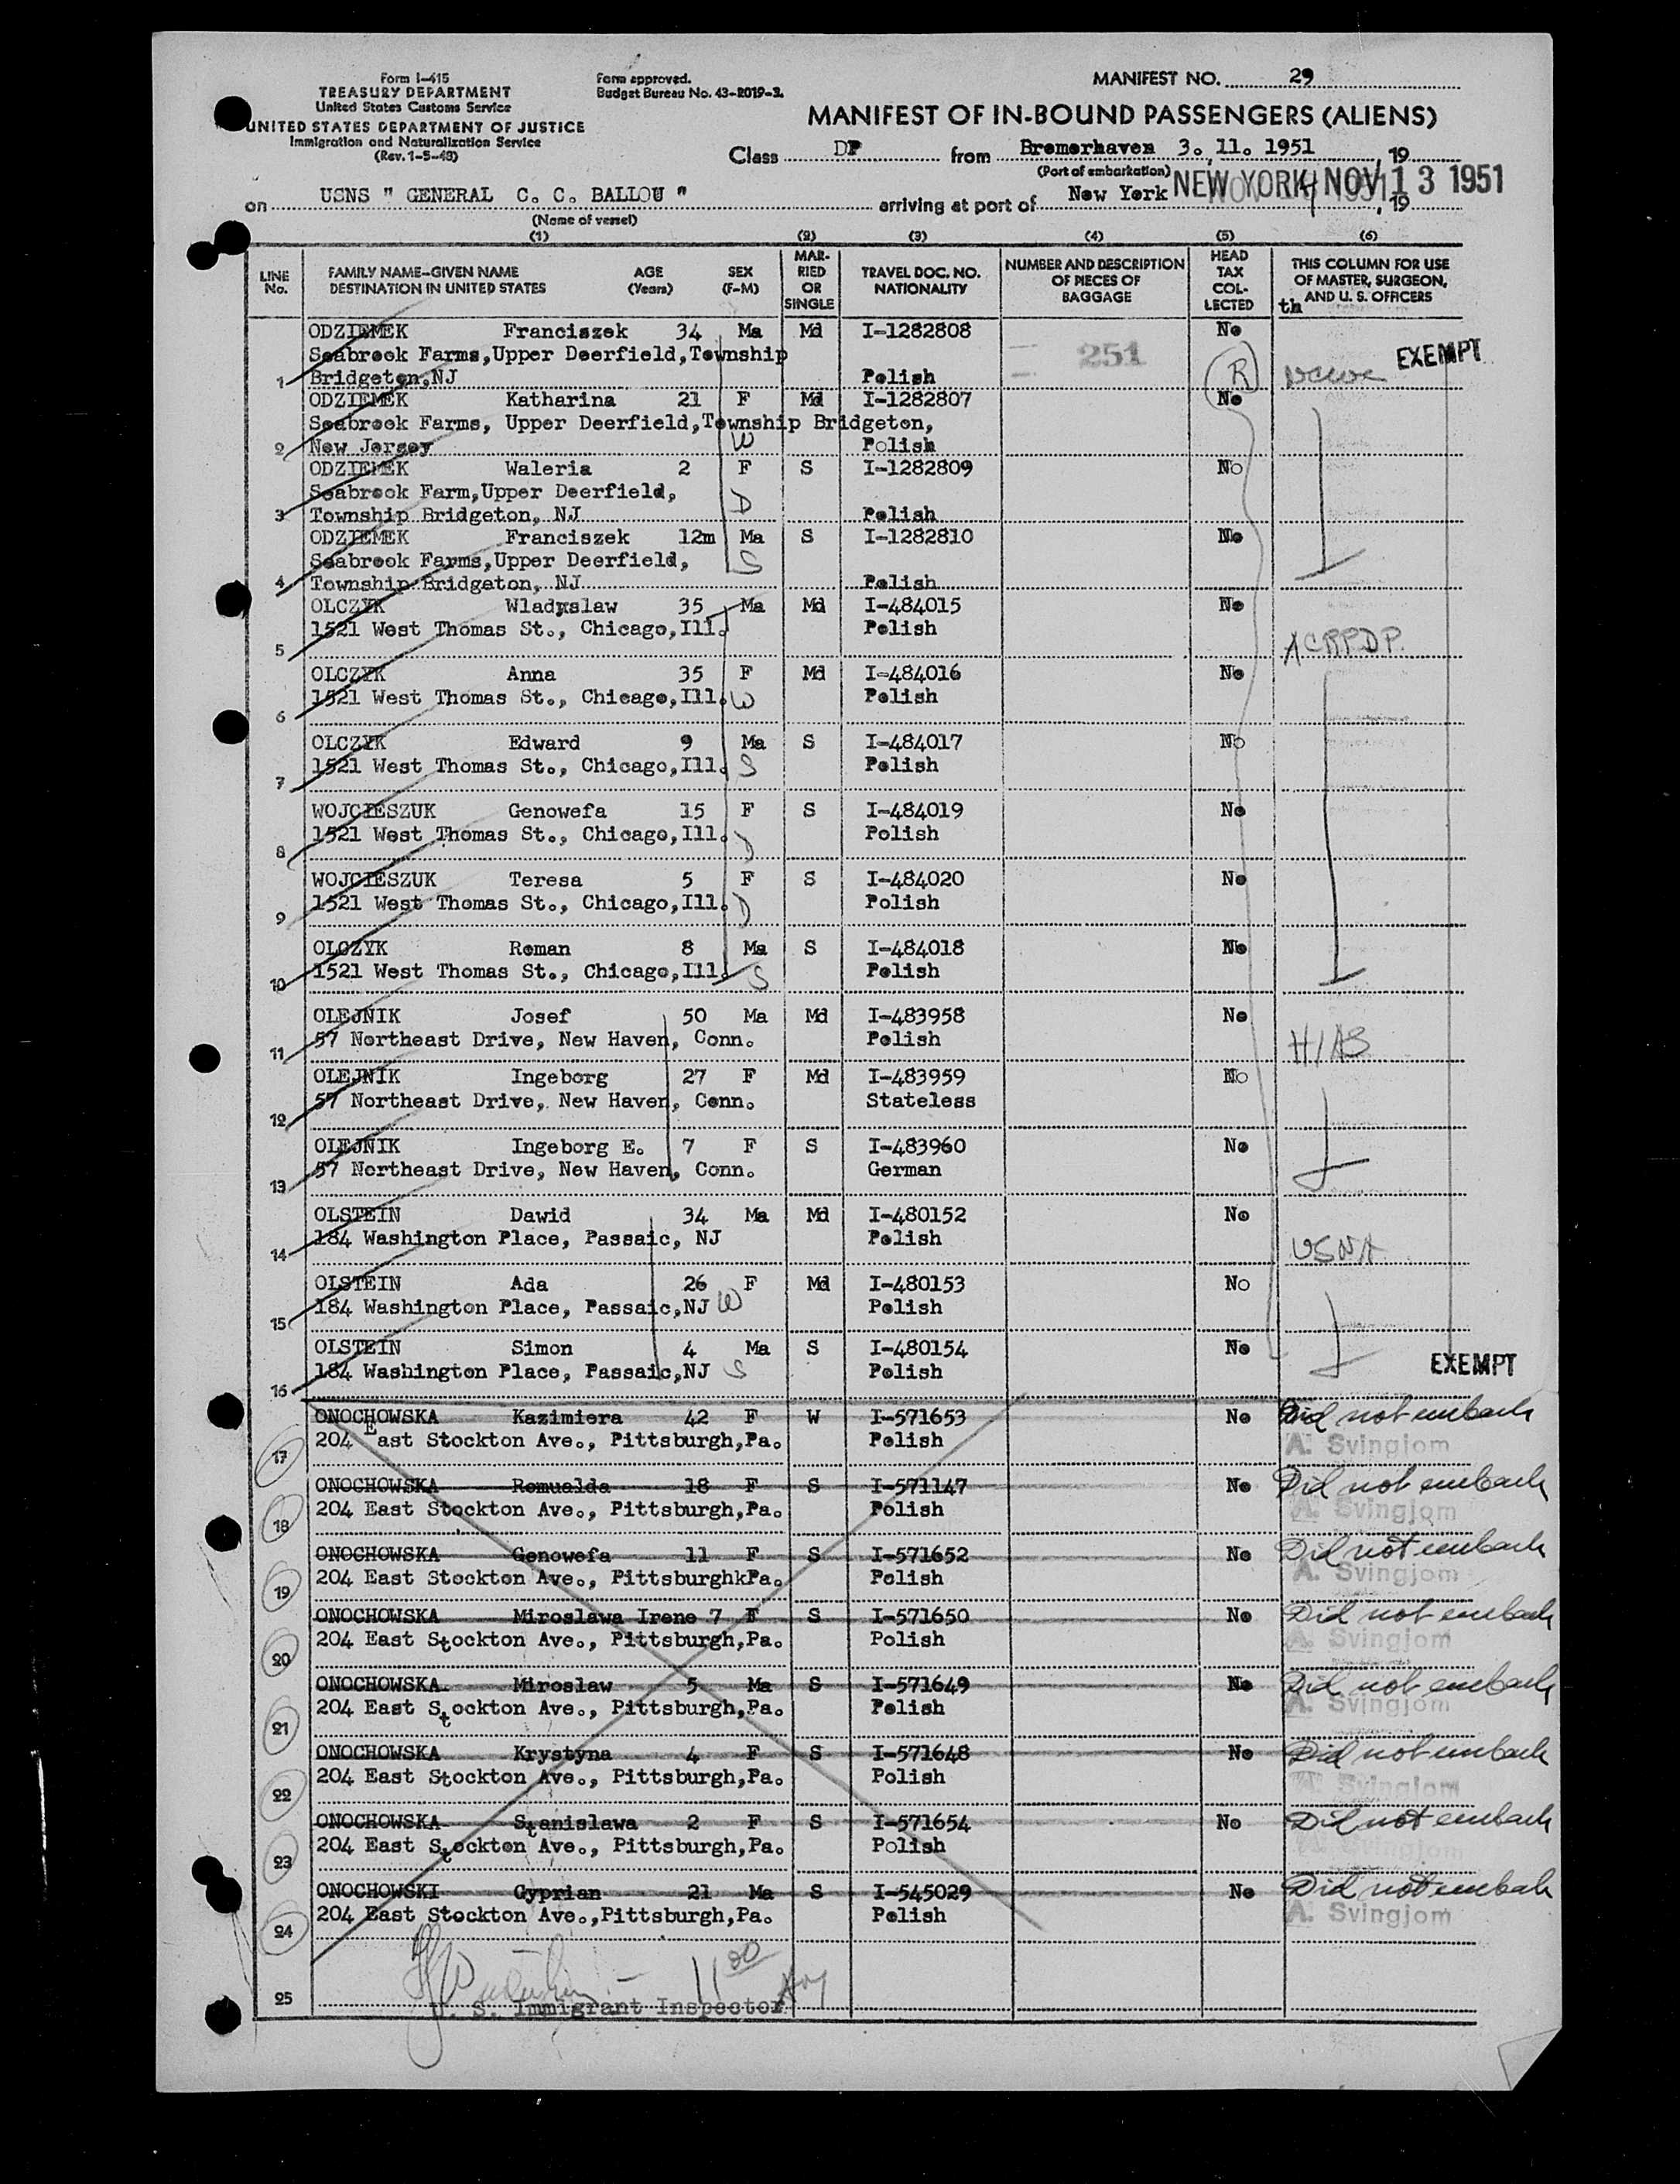 Form I-415
TREASURY DEPARTMENT
United States Customs Service
UNITED STATES DEPARTMENT OF JUSTICE
Immigration and Naturalization Service
(Rev. 1-5-48)
Form approved.
Budget Bureau No. 43-R019-3.
MANIFEST NO. 29
MANIFEST OF IN-BOUND PASSENGERS (ALIENS)
Class DP from Bremerhaven 3. 11. 1951, 19
(Port of embarkation)
on USNS " GENERAL C. C. BALLOU " arriving at port of New York NEW YORK NOV 13 1951, 19
(Name of vessel)
(1) (2) (3) (4) (5) (6)
LINE No. FAMILY NAME-GIVEN NAME DESTINATION IN UNITED STATES AGE (Years) SEX (F-M) MARRIED OR SINGLE TRAVEL DOC. NO. NATIONALITY NUMBER AND DESCRIPTION OF PIECES OF BAGGAGE HEAD TAX COLLECTED THIS COLUMN FOR USE OF MASTER, SURGEON, AND U. S. OFFICERS
th
ODZIEMEK Franciszek 34 Ma Md I-1282808 No
Seabrook Farms,Upper Deerfield,Township 251 EXEMPT
1 Bridgeton,NJ Polish R NCWC
ODZIEMEK Katharina 21 F Md I-1282807 No
Seabrook Farms, Upper Deerfield,Township Bridgeton,
2 New Jersey W Polish
ODZIEMEK Waleria 2 F S I-1282809 No
Seabrook Farm,Upper Deerfield, D
3 Township Bridgeton, NJ Polish
ODZIEMEK Franciszek 12m Ma S I-1282810 No
Seabrook Farms,Upper Deerfield, S
4 Township Bridgeton, NJ Polish
OLCZYK Wladyslaw 35 Ma Md I-484015 No
1521 West Thomas St., Chicago,Ill. Polish
5 ACRPDP
OLCZYK Anna 35 F Md I-484016 No
1521 West Thomas St., Chicago,Ill. W Polish
6
OLCZYK Edward 9 Ma S I-484017 No
1521 West Thomas St., Chicago,Ill. S Polish
7
WOJCIESZUK Genowefa 15 F S I-484019 No
1521 West Thomas St., Chicago,Ill. D Polish
8
WOJCIESZUK Teresa 5 F S I-484020 No
1521 West Thomas St., Chicago,Ill. D Polish
9
OLCZYK Roman 8 Ma S I-484018 No
1521 West Thomas St., Chicago,Ill. S Polish
10
OLEJNIK Josef 50 Ma Md I-483958 No
57 Northeast Drive, New Haven, Conn. Polish HIAS
11
OLEJNIK Ingeborg 27 F Md I-483959 No
57 Northeast Drive, New Haven, Conn. Stateless
12
OLEJNIK Ingeborg E. 7 F S I-483960 No
57 Northeast Drive, New Haven, Conn. German
13
OLSTEIN Dawid 34 Ma Md I-480152 No
184 Washington Place, Passaic, NJ Polish USNA
14
OLSTEIN Ada 26 F Md I-480153 No
184 Washington Place, Passaic,NJ W Polish
15
OLSTEIN Simon 4 Ma S I-480154 No
184 Washington Place, Passaic,NJ S Polish EXEMPT
16
ONOCHOWSKA Kazimiera 42 F W I-571653 No Did not embark
204 East Stockton Ave., Pittsburgh,Pa. Polish A. Svingjom
17
ONOCHOWSKA Romualda 18 F S I-571147 No Did not embark
204 East Stockton Ave., Pittsburgh,Pa. Polish A. Svingjom
18
ONOCHOWSKA Genowefa 11 F S I-571652 No Did not embark
204 East Stockton Ave., PittsburghkPa. Polish A. Svingjom
19
ONOCHOWSKA Miroslawa Irene 7 F S I-571650 No Did not embark
204 East Stockton Ave., Pittsburgh,Pa. Polish A. Svingjom
20
ONOCHOWSKA Miroslaw 5 Ma S I-571649 No Did not embark
204 East Stockton Ave., Pittsburgh,Pa. Polish A. Svingjom
21
ONOCHOWSKA Krystyna 4 F S I-571648 No Did not embark
204 East Stockton Ave., Pittsburgh,Pa. Polish A. Svingjom
22
ONOCHOWSKA Stanislawa 2 F S I-571654 No Did not embark
204 East Stockton Ave., Pittsburgh,Pa. Polish Svingjom
23
ONOCHOWSKI Cyprian 21 Ma S I-545029 No Did not embark
204 East Stockton Ave.,Pittsburgh,Pa. Polish A. Svingjom
24
11 00
25 S. Immigrant Inspector